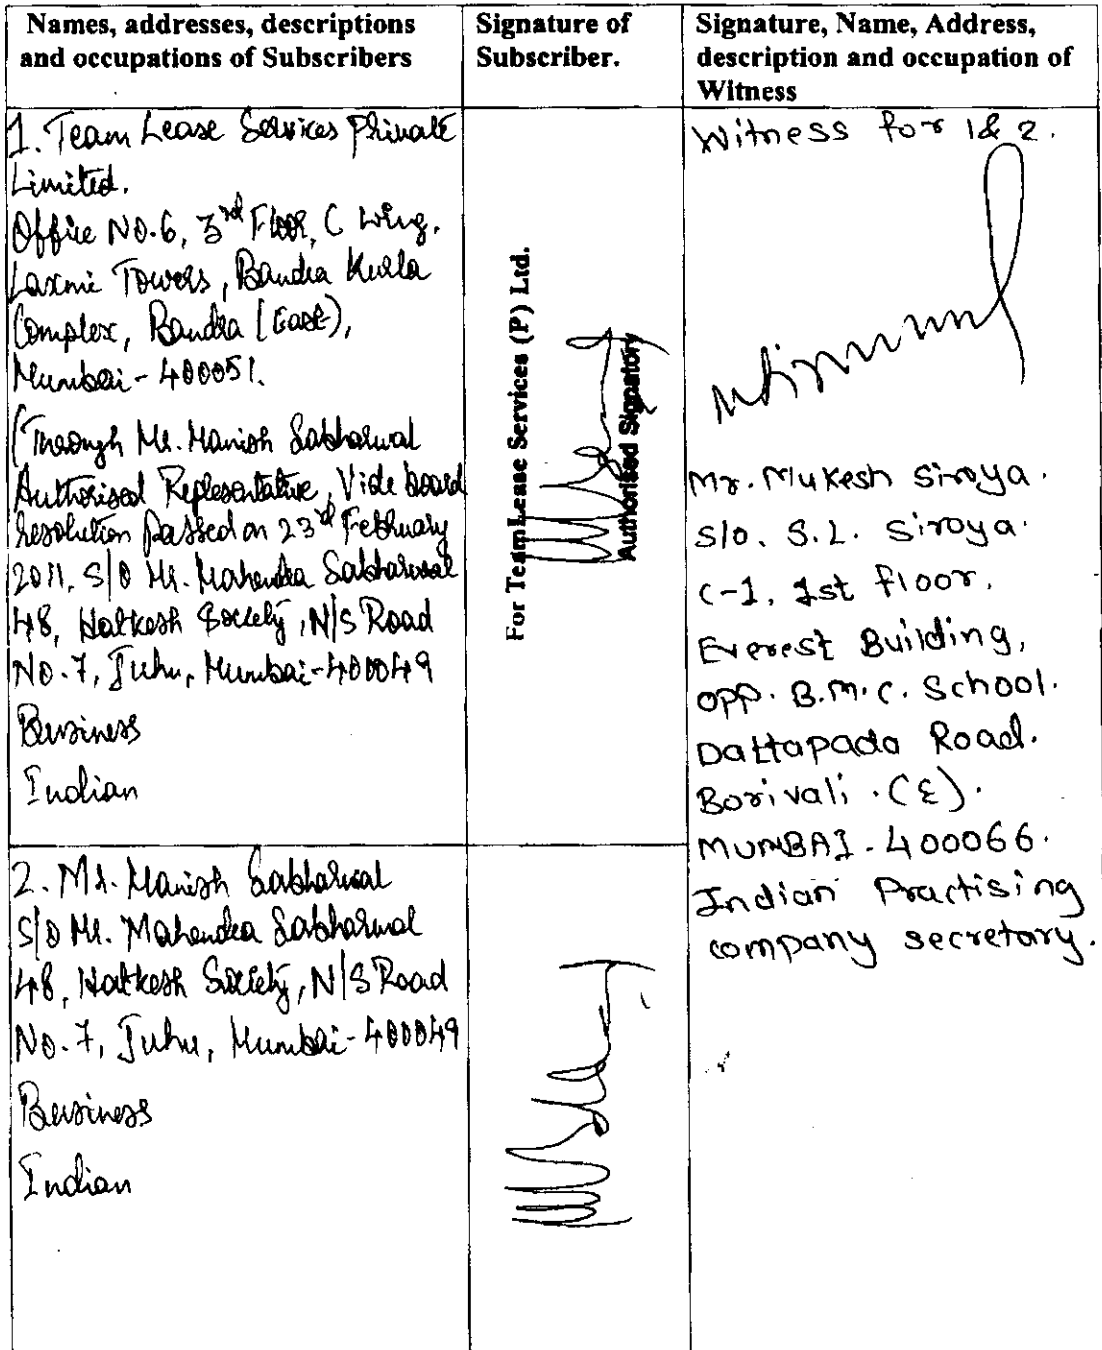 Names, addresses, descriptions
and occupations of Subscribers
Signature of
Subscriber.
Signature, Name, Address,
description and occupation of
Witness
1. Team Lease Services Private
Limited.
Office No.6, 3rd Floor, C Wing,
Laxmi Towers, Bandra Kurla
Complex, Bandra (East),
Mumbai - 400051.
(Through Mr. Manish Sabharwal
Authorised Representative, Vide board
resolution passed on 23rd February
2011, S/O Mr. Mahendra Sabharwal
48, Hatkesh Society, N/S Road
No. 7, Juhu, Mumbai-400049
Business
Indian
For TeamLease Services (P) Ltd.
Authorised Signatory
Witness for 1 & 2.
Mr. Mukesh Siroya.
S/o. S.L. Siroya.
C-1, 1st Floor,
Everest Building,
opp. B.M.C. School.
Dattapada Road.
Borivali (E).
MUMBAI - 400066.
Indian Practising
company secretary.
2. Mr. Manish Sabharwal
S/O Mr. Mahendra Sabharwal
48, Hatkesh Society, N/S Road
No. 7, Juhu, Mumbai-400049
Business
Indian